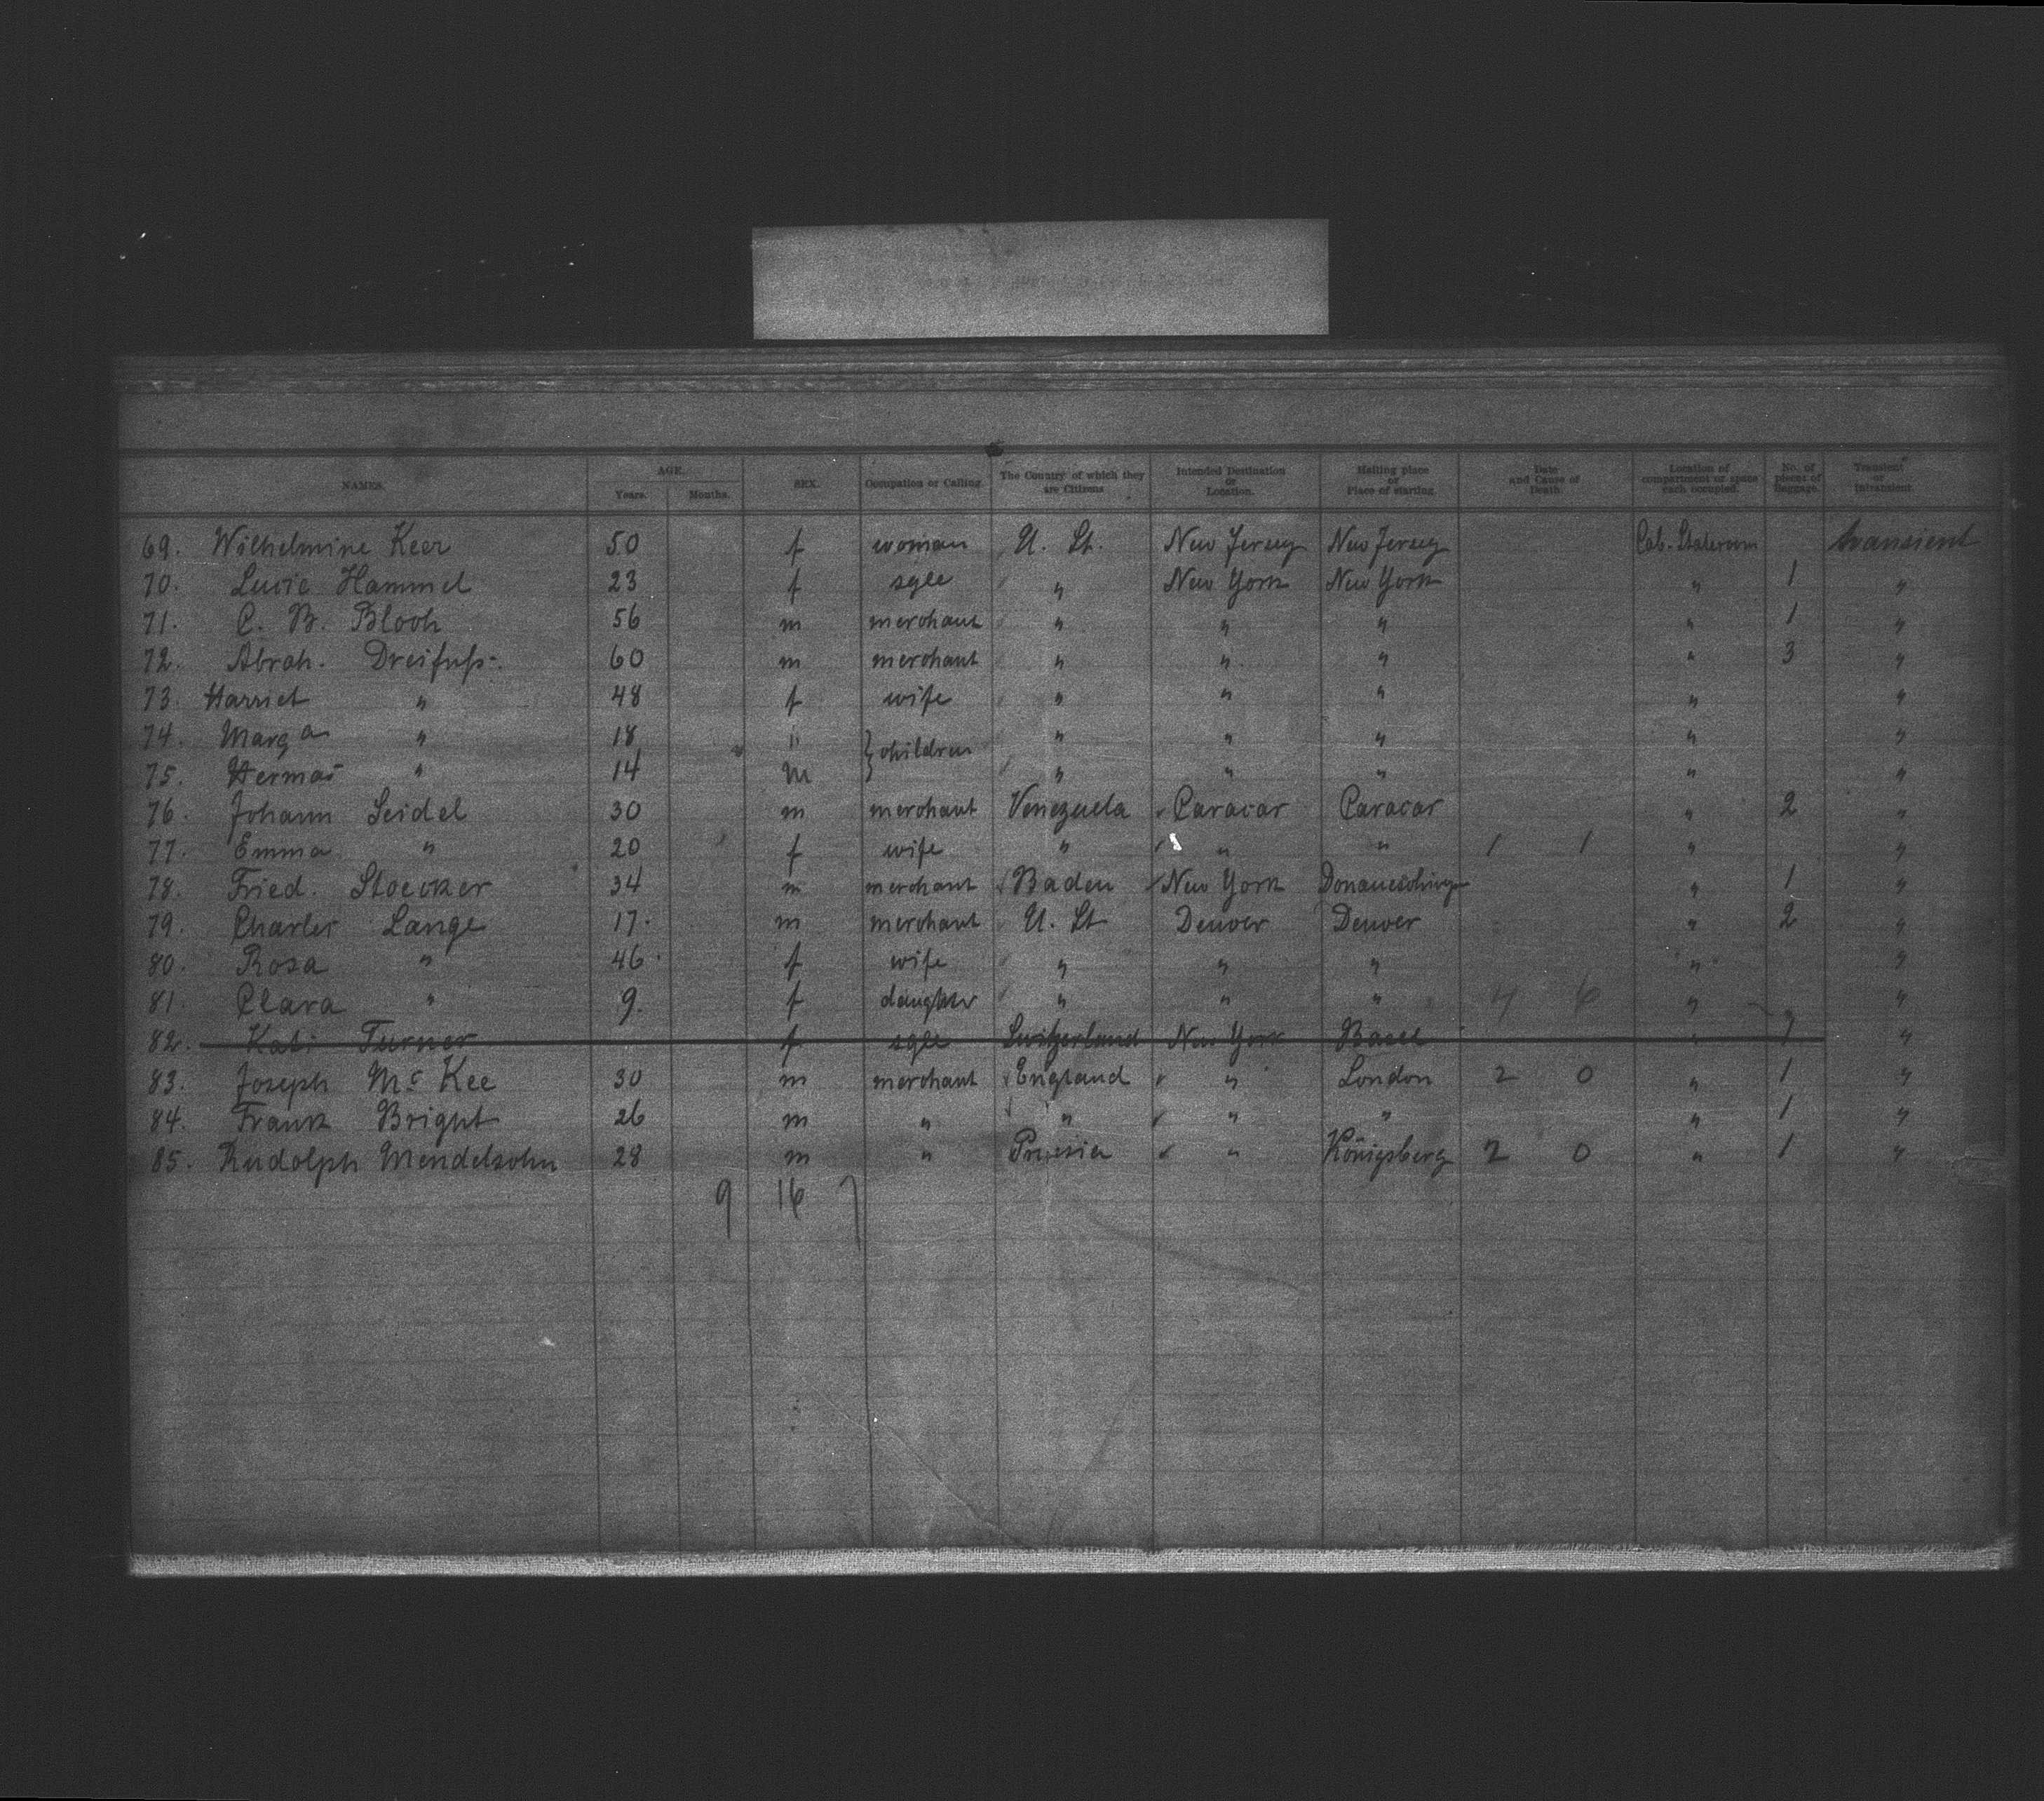 NAMES. AGE. SEX. Occupation or Calling. The Country of which they are Citizens Intended Destination or Location. Halting place or Place of starting. Date and Cause of Death. Location of compartment or space each occupied. No. of pieces of Baggage. Transient or Intransient.
Years. Months.
69. Wilhelmine Keer 50 f woman U. St. New Jersey New Jersey Cab. Stateroom transient
70. Lucie Hammel 23 f sgle " New York New York " 1 "
71. C. B. Bloch 56 m merchant " " " " 1 "
72. Abrah. Dreifuß. 60 m merchant " " " " 3 "
73. Harriet " 48 f wife " " " " "
74. Marga " 18 " } children " " " " "
75. Herman " 14 m " " " " "
76. Johann Seidel 30 m merchant Venezuela Caracar Caracar " 2 "
77. Emma " 20 f wife " " " 1 1 " "
78. Fried. Stoecker 34 m merchant Baden New York Donaueschingen " 1 "
79. Charles Lange 17. m merchant U. St Denver Denver " 2 "
80. Rosa " 46. f wife " " " " "
81. Clara " 9. f daughter " " " 4 6 " "
82. Kati Turner f sgle Switzerland New York Basel " 1 "
83. Joseph Mc Kee 30 m merchant England " London 2 0 " 1 "
84. Frank Bright 26 m " " " " " 1 "
85. Rudolph Mendelsohn 28 m " Prussia " Königsberg 2 0 " 1 "
9 16 7